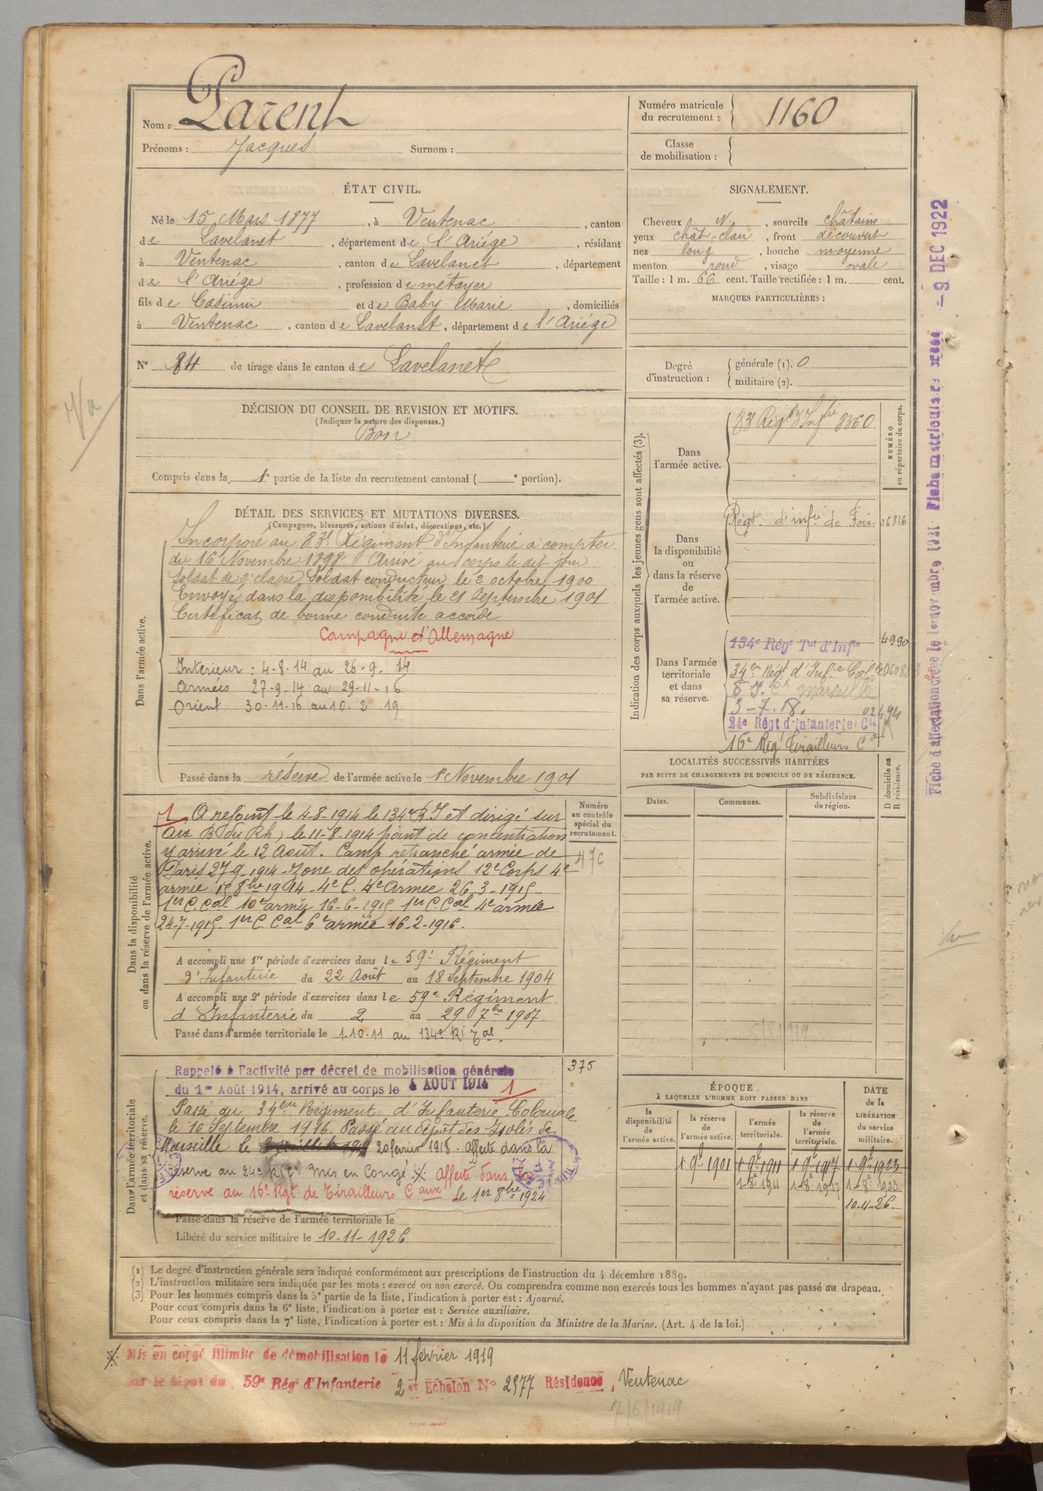 Nom : Parent
Prénoms : Jacques Surnom :
Numéro matricule du recrutement : 1160
Classe de mobilisation :
ÉTAT CIVIL.
Né le 15 Mars 1877, à Ventenac, canton
de Lavelanet, département de l'Ariége, résidant
à Ventenac, canton de Lavelanet, département
de l'Ariége, profession de métayer
fils de Casimir et de Baby Marie, domiciliés
à Ventenac, canton de Lavelanet, département de l'Ariége
N° 84 de tirage dans le canton de Lavelanet
SIGNALEMENT.
Cheveux N, sourcils châtains
yeux chât-clair, front découvert
nez long, bouche moyenne
menton rond, visage ovale
Taille : 1 m. 66 cent. Taille rectifiée : 1 m. cent.
MARQUES PARTICULIÈRES :
Degré d'instruction : générale (1). 0
militaire (2).
DÉCISION DU CONSEIL DE REVISION ET MOTIFS.
(Indiquer la nature des dispenses.)
Bon
Compris dans la 1e partie de la liste du recrutement cantonal ( e portion).
DÉTAIL DES SERVICES ET MUTATIONS DIVERSES.
(Campagnes, blessures, actions d'éclat, décorations, etc.)
Dans l'armée active.
Incorporé au 83e Régiment d'Infanterie à compter
du 16 Novembre 1898. Arrivé au corps le dit jour
Soldat de 2e classe Soldat conducteur le 2 octobre 1900
Envoyé dans la disponibilité le 21 Septembre 1901
Certificat de bonne conduite accordé
Campagne d'Allemagne
Intérieur : 4-8-14 au 26-9-14
Armées 27-9-14 au 29-11-16
Orient 30-11-16 au 10-2-19
Passé dans la réserve de l'armée active le 1er Novembre 1901
Indication des corps auxquels les jeunes gens sont affectés (3).
NUMÉRO au répertoire du corps.
Dans l'armée active.
83 Régt d'Infie 8360
Dans la disponibilité ou dans la réserve de l'armée active.
Régt. d'infie de Foix 06816
Dans l'armée territoriale et dans sa réserve.
134e Régt Tal d'Infie 4990
34e Régt d'Infie Cole
Marseille
3-7-18.
24e Régt d'Infanterie Cle
16e Régt Tirailleurs
LOCALITÉS SUCCESSIVES HABITÉES
PAR SUITE DE CHANGEMENTS DE DOMICILE OU DE RÉSIDENCE.
Dates. Communes. Subdivisions de région. D domicile ou R résidence.
Dans la disponibilité ou dans la réserve de l'armée active.
Numéro au contrôle spécial du recrutement.
476
1 A rejoint le 4-8-1914 le 134e R.I et dirigé sur
Aix B du Rh, le 11-8-1914 point de concentration
y arrivé le 12 Aout. Camp retranché armée de
Paris 27-9-1914 - Zone des opérations 12e Corps 4e
armée 15 8bre 1914 - 4e C. 4e Armée 26-3-1915
1er C Cal 10e armée 16-6-1915 1er C Cal 4e armée
24-7-1915 1er C. Cal 6e armée 16-2-1916.
A accompli une 1re période d'exercices dans le 59e Régiment
d'Infanterie du 22 Août au 18 Septembre 1904
A accompli une 2e période d'exercices dans le 59e Régiment
d'Infanterie du 2 au 29 7bre 1907
Passé dans l'armée territoriale le 1-10-11 au 134e RI Tal.
Dans l'armée territoriale et dans sa réserve.
375
Rappelé à l'activité par décret de mobilisation générale
du 1er Août 1914, arrivé au corps le 4 AOUT 1914 1
Passé au 34eme Régiment d'Infanterie Coloniale
le 10 Septembre 1916. Passé au dépôt des Isolés de
Marseille le 20 février 1918. Affecté dans la
réserve au 24e R.I.C. Mis en Congé. X Affecté dans la
réserve au 16e Rgt de Tirailleurs le 1er 8bre 1924
Passé dans la réserve de l'armée territoriale le
Libéré du service militaire le 10-11-1926
ÉPOQUE
À LAQUELLE L'HOMME DOIT PASSER DANS
la disponibilité de l'armée active. la réserve de l'armée active. l'armée territoriale. la réserve de l'armée territoriale.
DATE de la LIBÉRATION du service militaire.
1 9e 1901 1 9e 1911 1 9e 1917 1-9e 1923
10-11-26.
(1) Le degré d'instruction générale sera indiqué conformément aux prescriptions de l'instruction du 4 décembre 1889.
(2) L'instruction militaire sera indiquée par les mots : exercé ou non exercé. On comprendra comme non exercés tous les hommes n'ayant pas passé au drapeau.
(3) Pour les hommes compris dans la 5e partie de la liste, l'indication à porter est : Ajourné.
Pour ceux compris dans la 6e liste, l'indication à porter est : Service auxiliaire.
Pour ceux compris dans la 7e liste, l'indication à porter est : Mis à la disposition du Ministre de la Marine. (Art. 4 de la loi.)
X Mis en congé illimité de démobilisation le 11 février 1919
par le dépôt du 59e Régt d'Infanterie 2e Echelon N° 2977 Résidence, Ventenac
7/6/1919
- 9 DEC 1922